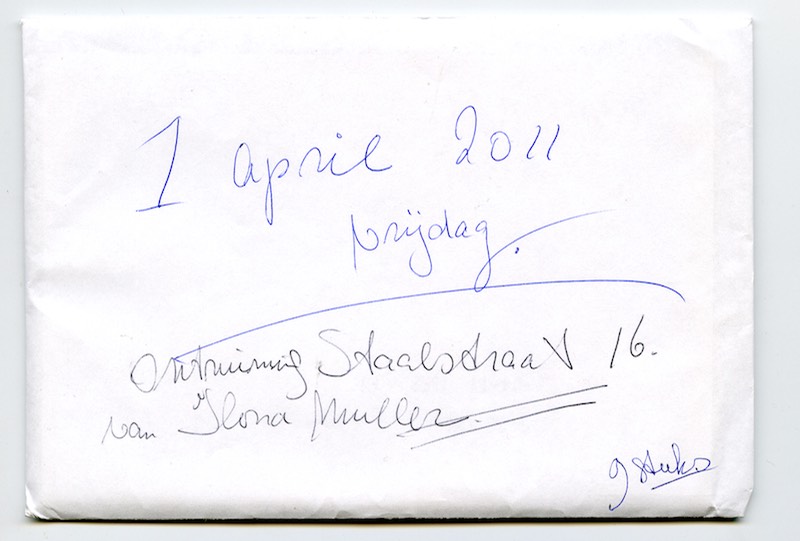 1 april 2011
vrijdag.
Ontruiming Staalstraat 16.
van Ilona Muller.
9 stuks